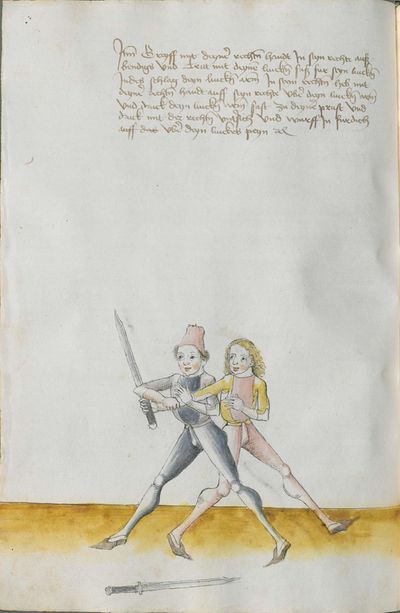 Itm Greyff mit deyner rechten handt In sein rechte auß
bendigs Vnd Trit mit deynem lincken fuß fur seyn lincken
Indes schlag deyn lincken arm In seim rechten
deyner rechten handt auff sein rechte vber deyn lincken arm
Vnd druck deyn lincken arm fast zu deyner prust Vnd
druck mit der rechten Vnd wurff In
auff das vber deyn linckes peyn